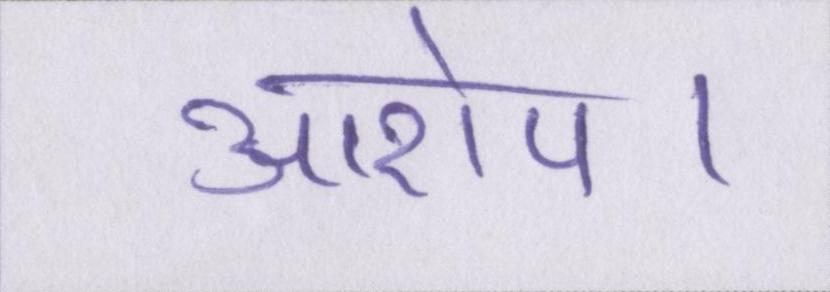 आरोप।